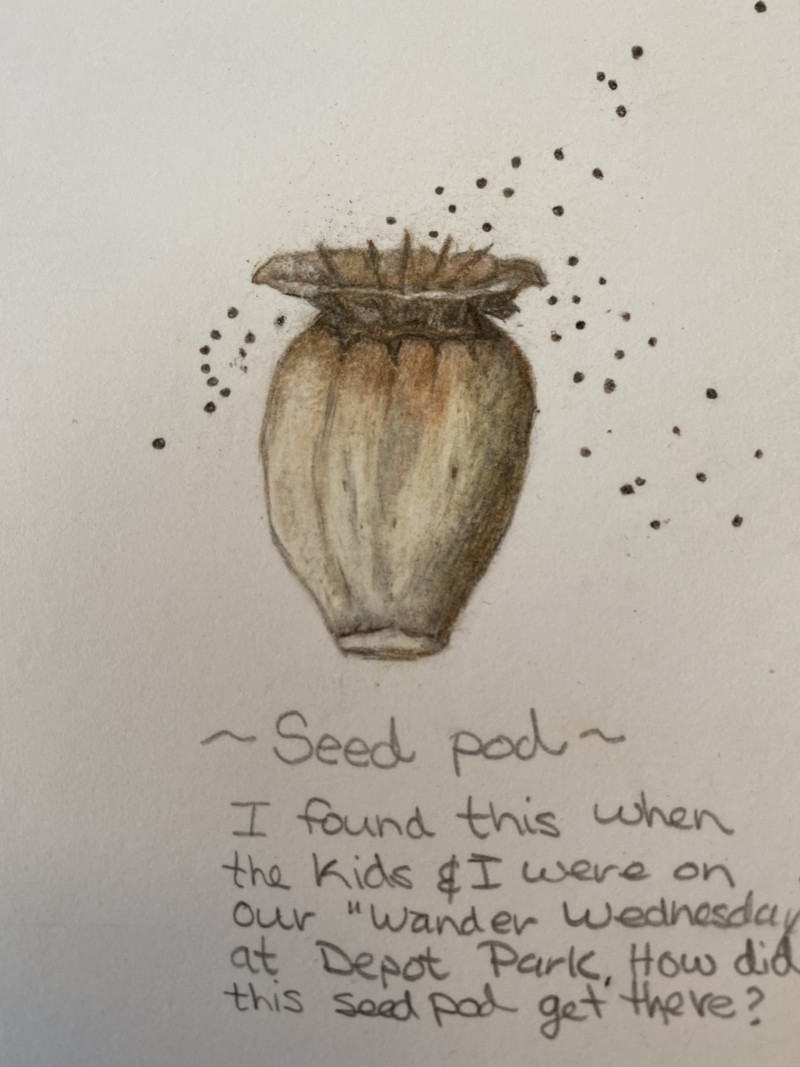 ~ Seed pod ~
I found this when
the kids & I were on
our "Wander Wednesday
at Depot Park. How did
this seed pod get there?